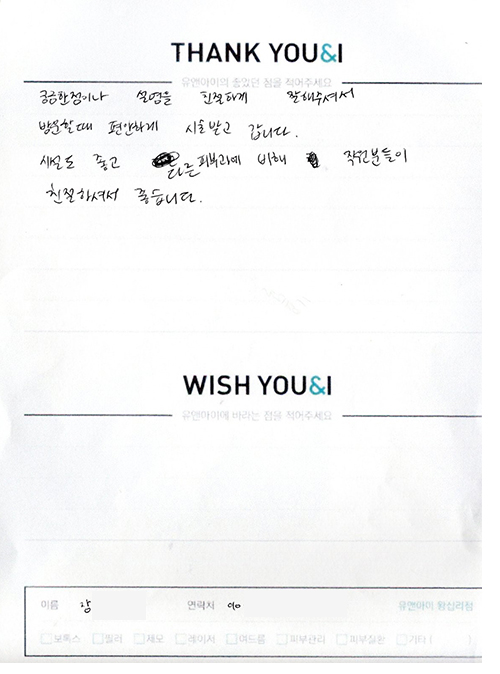 THANK YOU&I
유앤아이의 좋았던 점을 적어주세요
궁금한점이나 설명을 친절하게 잘해주셔서
방문할때 편안하게 시술받고 갑니다.
시설도 좋고 다른 피부과에 비해 직원분들이
친절하셔서 좋습니다.
WISH YOU&I
유앤아이에 바라는 점을 적어주세요
이름 강 연락처 010 유앤아이 왕십리점
보톡스 필러 제모 레이저 여드름 피부관리 피부질환 기타 ( )